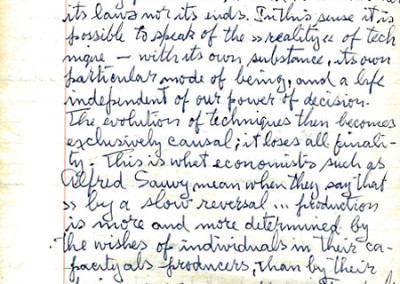 its laws nor its ends. In this sense it is
possible to speak of the »reality« of tech
nique – with its own substance, its own
particular mode of being, and a life
independent of our power of decision.
The evolution of techniques then becomes
exclusively causal; it loses all finali-
ty. This is what economists such as
Alfred Sauvy mean when they say that
» by a slow reversal ... production
is more and more determined by
the wishes of individuals in their ca-
pacity als producers, than by their